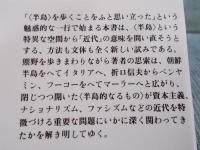 「〈半島〉を歩くことをふと思い立った」という
魅惑的な一行で始まる本書は、〈半島〉とい
う特異な空間から「近代」の意味を問い直そうと
する、方法も文体も全く新しい試みである。
熊野を歩きまわりながら著者の思索は、朝鮮
半島をへてイタリアへ、折口信夫からベンヤ
ミン、フーコーをへてマーラーへと広がり、
閉じつつ開いた〈半島的なるもの〉が資本主義、
ナショナリズム、ファシズムなどの近代を特
徴づける重要な問題にいかに深く関わってき
たかを解き明してゆく。